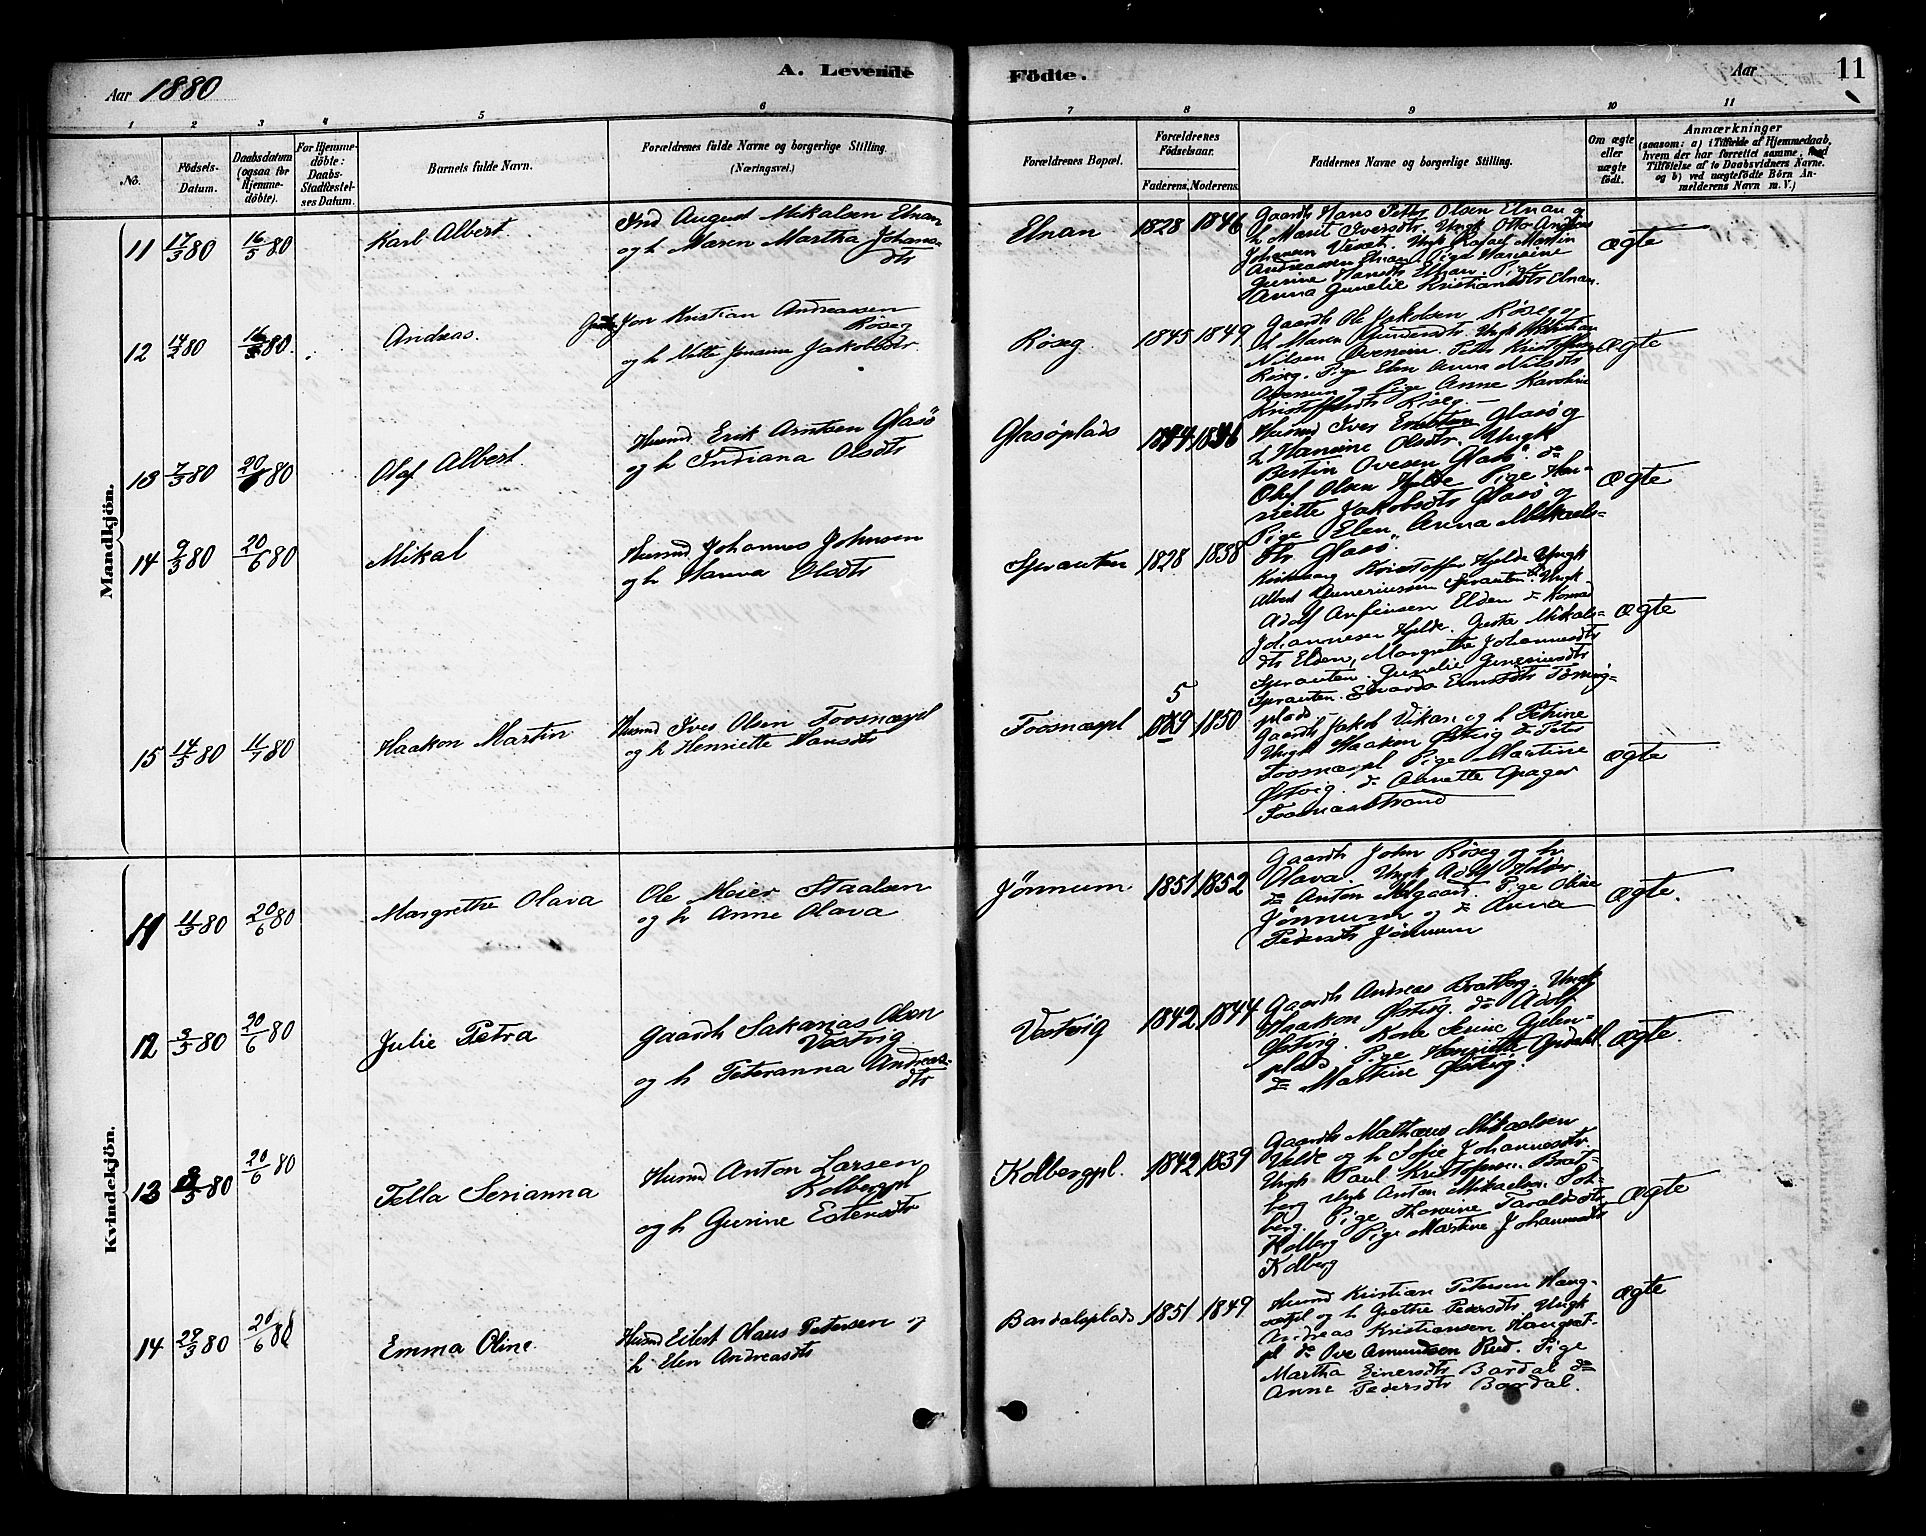 Aar 1880
A. Levende
Födte.
Aar
11
1
2
3
4
5
6
7
8
9
10
11
No.
Födsels-
Datum.
Daabsdatum
(ogsaa for
Hjemme-
döbte).
For Hjemme-
döbte:
Daabs-
Stadfæstel-
ses Datum.
Barnets fulde Navn.
Forældrenes fulde Navne og borgerlige Stilling.
(Næringsvei.)
Forældrenes Bopæl.
Forældrenes
Födselsaar.
Faderens.
Moderens.
Faddernes Navne og borgerlige Stilling.
Om ægte
eller
uægte
födt.
Anmærkninger
(saasom: a) i Tilfælde af Hjemmedaab,
hvem der har forrettet samme, med
Tilföielse af to Daabsvidners Navne.
og b) ved uægtefödte Börn An-
melderens Navn m. V.)
Mandkjön.
11 17/3 80 16/5 80
Karl Albert
Ind August Mikalsen Elnan
og h Maren Martha Johans-
dtr
Elnan 1828 1846
Gaardb Hans Petter Olsen Elnan og
h Maret Iversdtr. Ungk Otto Andreas
Johansen Ungk Rafael Martin
Andreassen Elnan Pige Hansine
Gurine Hansdtr Elnan. Pige
Anna Gunelie Kristiansdtr Elnan.
ægte
12 14/3 80 16/5 80.
Andreas.
Gaardb Jon Kristian Andreassen
Röseg
og h Nette Jensine Jakobsdr
Röseg 1845 1849
Gaardb Ole Jakobsen Röseg og
h Maren Ungk Kristian
Nilsen Ovenum. Petter Kristoffersen
Röseg. Pige Elen Anna Nilsdtr
Ovenum og Pige Anne Karoline
Kristoffersdtr Röseg.
ægte
13 7/3 80 20/6 80
Olaf Albert
Husmd Erik Arntsen Glasö
og h Indiana Olsdtr
Glasöplads 1844 1846
Husmd Iver Glasö og
h Hansine Olsdtr. Ungk
Bertin Ovesen Glasö. do
Oluf Olsen Hjelde Pige Hen-
riette Jakobsdtr Glasö og
Pige Elen Anna Mikaels-
dtr Glasö.
ægte
14 9/3 80 20/6 80
Mikal
Husmd Johannes Johnsen
og h Hanna Olsdtr
Sprauten 1828 1838
Kirkesang Kristoffer Hjelde Ungk
Albert Guneriussen Sprauten. Ungk
Adolf Anfinsen Elden do Konrad
Johannesen Hjelde. Gusta Mikals-
dtr Elden, Margrethe Johannesdtr
Sprauten. Gunelie Guneriusdtr
Sprauten. Edvarda Ernstdtr Tömmig-
plads
ægte
15 14/5 80 11/7 80
Haakon Martin
Husmd Iver Olsen Foosnæspl
og h Henriette Hansdtr
Foosnæspl 5 1850
Gaardb Jakob Vikan og h Petrine
Ungk Haakon Östvig do Peter
Foosnæspl Pige Martine
Östvig. do Annette Opager
Foosnæsstrand
ægte
Kvindekjön.
11 11/3 80 20/6 80
Margrethe Olava
Ole Meier Staalsen
og h Anne Olava
Jönnum 1851 1852
Gaardb John Röseg og h
Olava Ungk Adolf Hjelde
do Anton Melgaard. Pige Stine
Jönnum og do Anna
Pedersdtr Jönnum
ægte.
12 3/5 80 20/6 80
Julie Petra
Gaardb Sakarias Olsen
Vestvig
og h Peteranna Andreas-
dtr
Vestvig 1842 1844
Gaardb Andreas Bratberg. Ungk
Haakon Östvig. do Adolf
Östvig. Kone Serine Gjelen-
plads Pige Henriette Opdahl
do Martine Östvig.
ægte.
13 8/5 80 20/6 80
Tella Serianna
Husmd Anton Larsen
Kolbergpl
og h Gurine Estensdtr
Kolbergpl. 1842 1839
Gaardb Matheus Mikaelsen
Velde og h Sofie Johannesdtr.
Ungk Paul Kristofersen. Brat-
berg Ungk Anton Mikaelsen Sol-
berg. Pige Thorvine Taraldsdtr
Kolberg Pige Martine Johannesdtr
Kolberg
ægte
14 28/3 80 20/6 80
Emma Oline
Husmd Eilert Olaus Petersen og
h Elen Andreasdtr
Bardalsplads 1851 1849
Husmd Kristian Petersen Haug-
setpl og h Grethe Pedersdtr Ungk
Andreas Kristiansen Haugset-
pl do Ove Amundsen Rud. Pige
Martha Einersdtr Bardal do
Anne Pedersdtr Bardal.
ægte